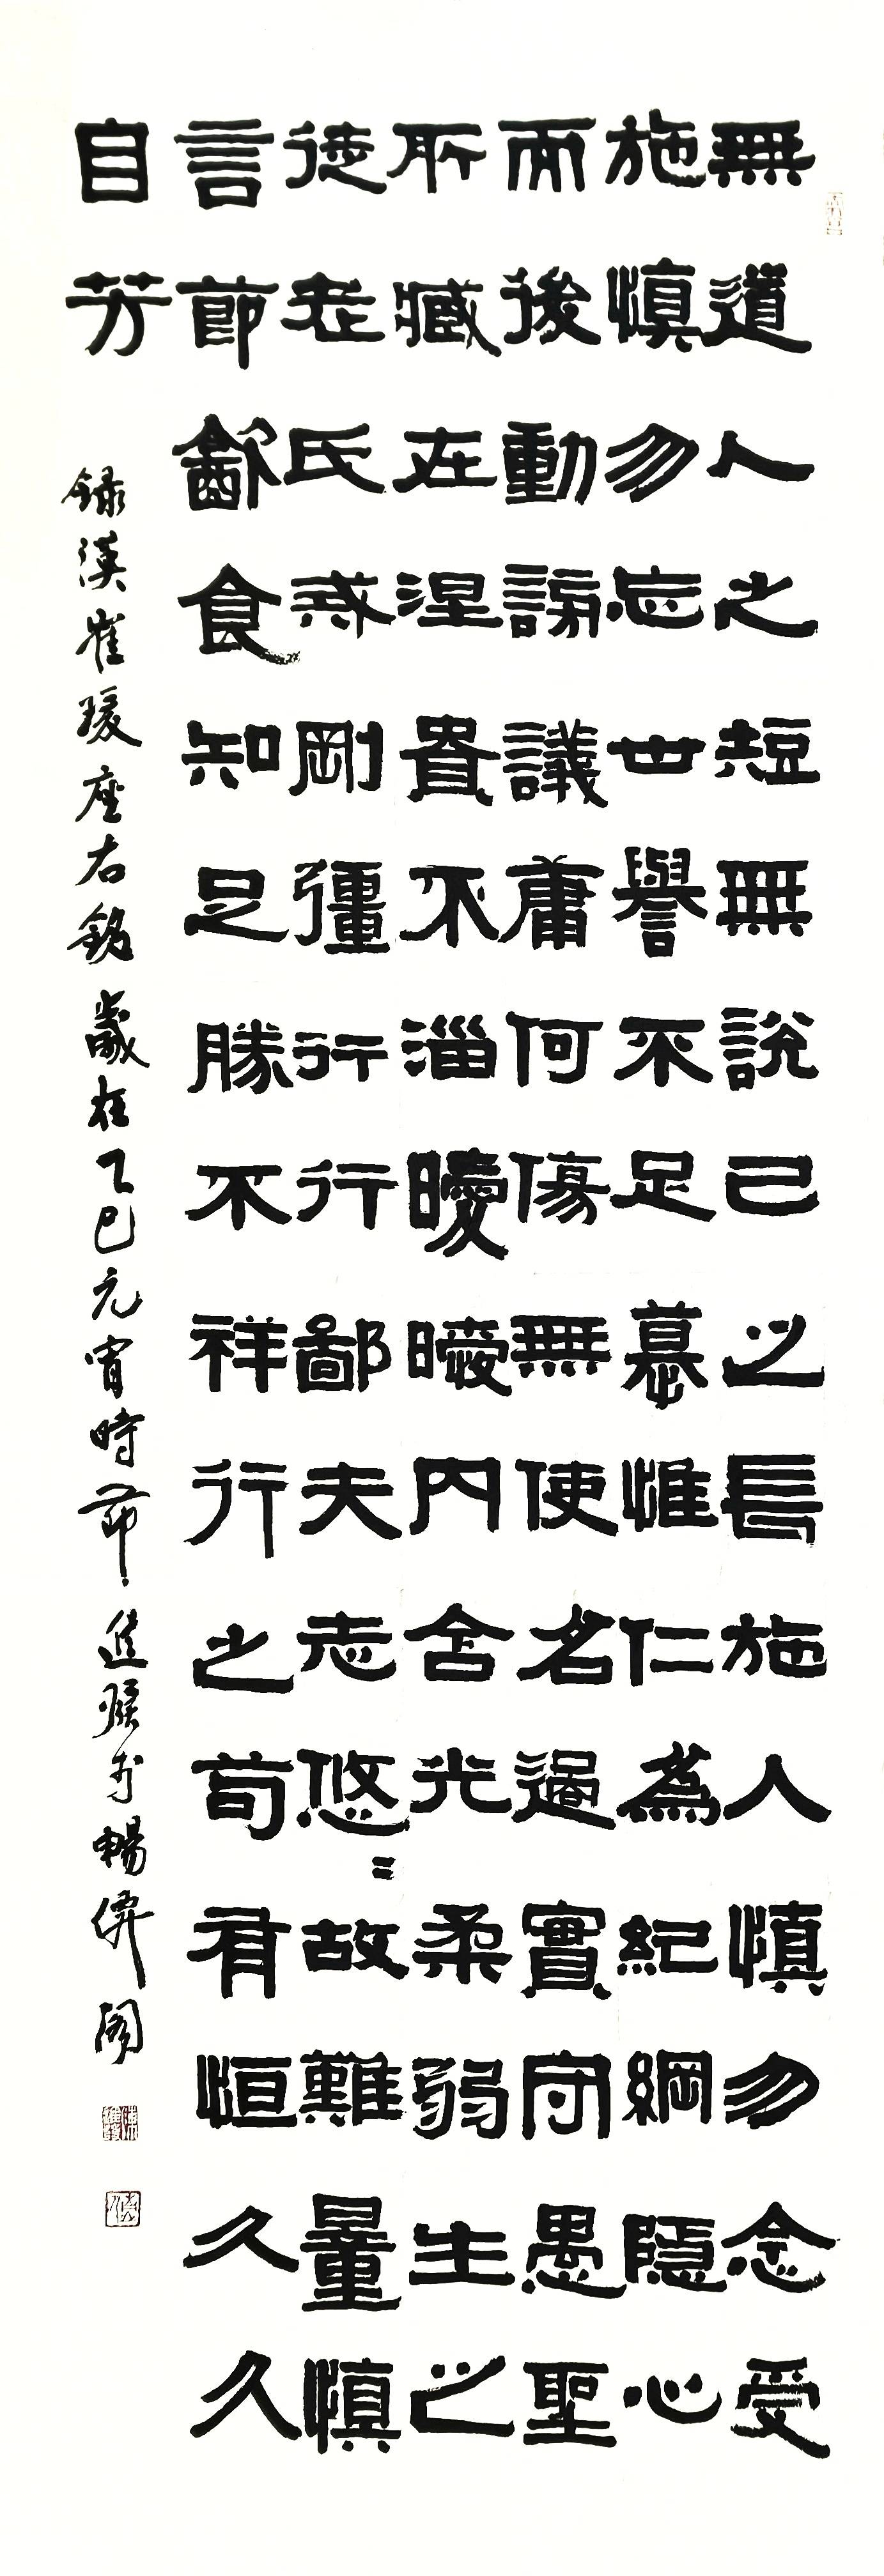 無道人之短無說己之長施人慎勿念受
施慎勿忘世譽不足慕惟仁為紀綱隱心
而後動謗議庸何傷無使名過實守愚聖
所臧在涅貴不淄曖曖內含光柔弱生之
徒老氏戒剛彊行行鄙夫志悠〻故難量慎
言節飲食知足勝不祥行之苟有恒久久
自芳
錄漢崔瑗座右銘歲在乙巳元宵時節於暢閣